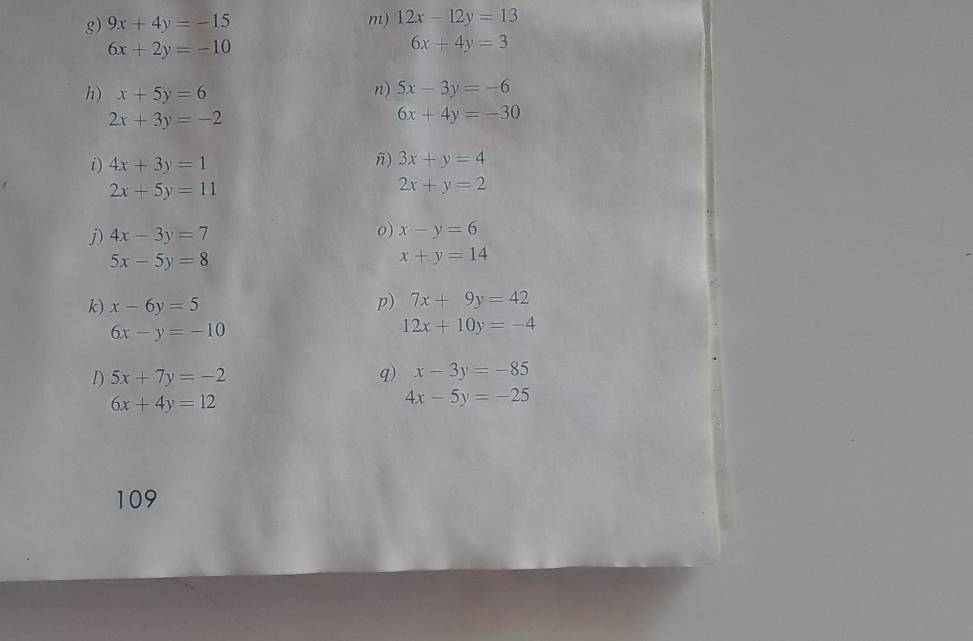 g) 9x + 4y = -15
6x + 2y = -10
h) x + 5y = 6
2x + 3y = -2
i) 4x + 3y = 1
2x + 5y = 11
j) 4x - 3y = 7
5x - 5y = 8
k) x - 6y = 5
6x - y = -10
l) 5x + 7y = -2
6x + 4y = 12
m) 12x - 12y = 13
6x + 4y = 3
n) 5x - 3y = -6
6x + 4y = -30
ñ) 3x + y = 4
2x + y = 2
o) x - y = 6
x + y = 14
p) 7x + 9y = 42
12x + 10y = -4
q) x - 3y = -85
4x - 5y = -25
109